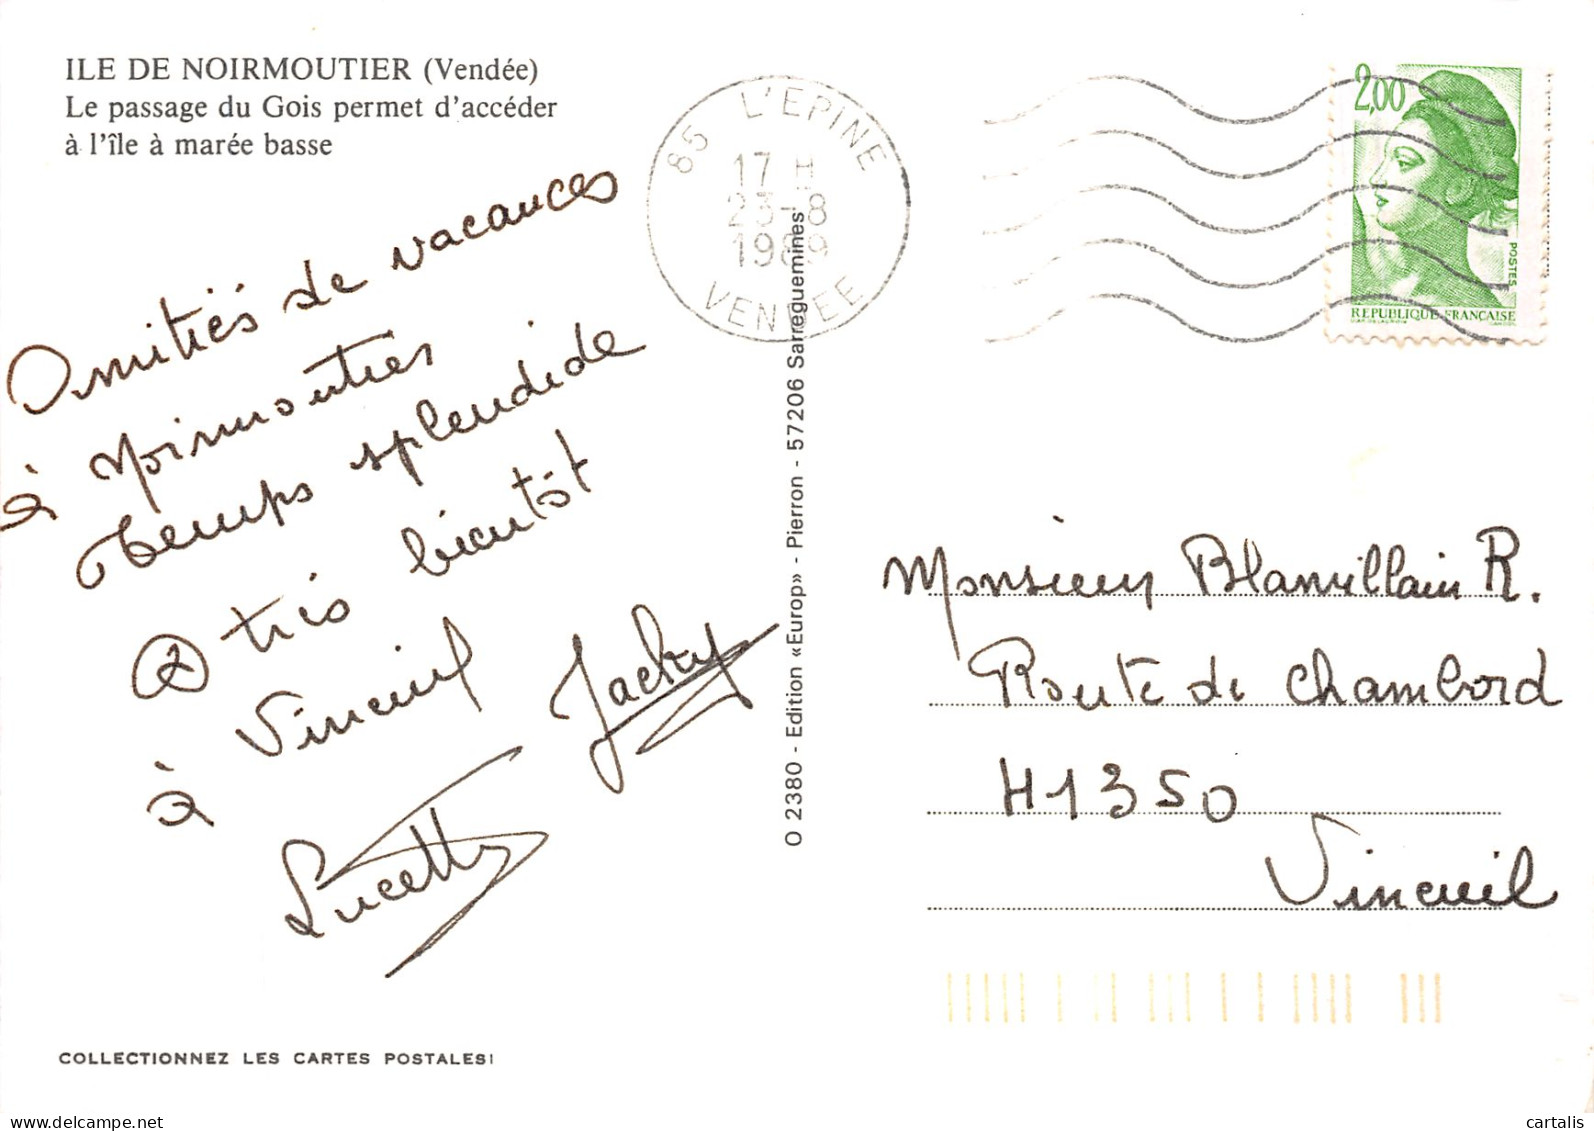 ILE DE NOIRMOUTIER (Vendée)
Le passage du Gois permet d'accéder
à l'île à marée basse
Amitiés de vacances
à Noirmoutier
Temps splendide
à très bientôt
à Vineuil
Jacky
Lucette
85 L'EPINE
17 H
23-8
1989
VENDEE
O 2380 - Edition «Europ» - Pierron - 57206 Sarreguemines
2,00
POSTES
REPUBLIQUE FRANÇAISE
Monsieur Blanvillain R.
Route de Chambord
41350
Vineuil
COLLECTIONNEZ LES CARTES POSTALES!
delcampe.net
cartalis